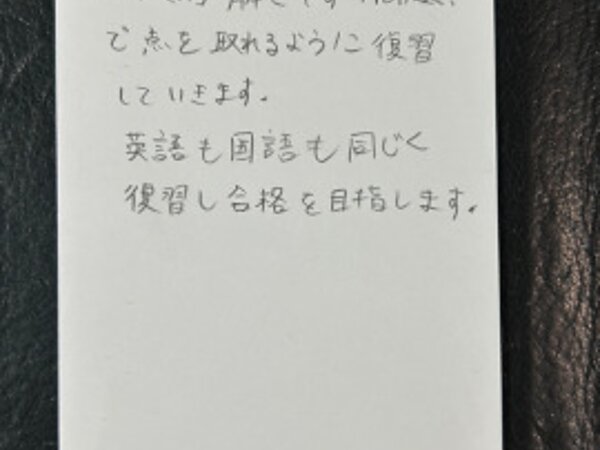 で点を取れるように復習
していきます。
英語も国語も同じく
復習し合格を目指します。